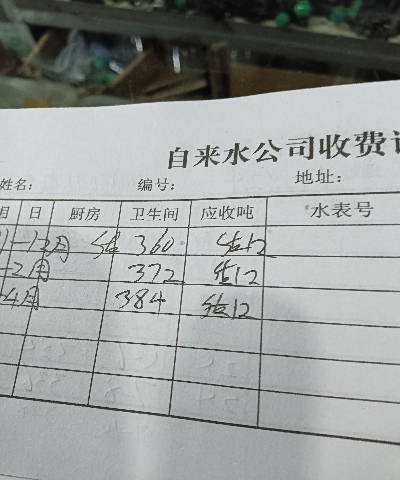 自来水公司收费
姓名: 编号: 地址:
月 日 厨房 卫生间 应收吨 水表号
-12月 估 360 估12
-2月 372 估12
-4月 384 估12